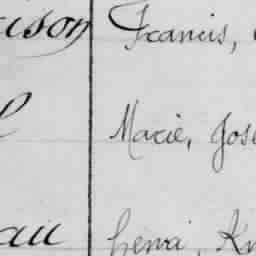 ison Francis,
l Marie, José
au Henri, Kn